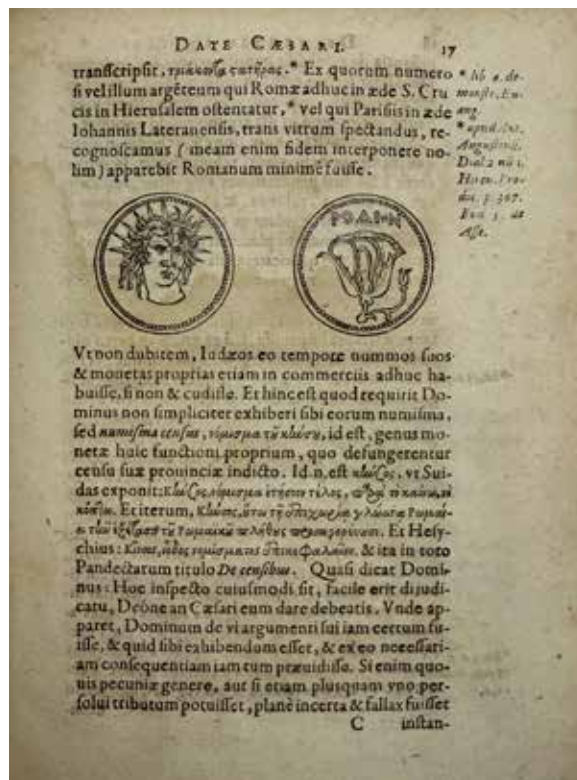 DATE CÆSARI. 17
transscripsit, τριάκοντα στατῆρας.* Ex quorum numero
si vel illum argẽteum qui Romæ adhuc in æde S. Cru
cis in Hierusalem ostentatur,* vel qui Parisiis in æde
Iohannis Lateranensis, trans vitrum spectandus, re-
cognoscamus (meam enim fidem interponere no-
lim) apparebit Romanum minimè fuisse.
* lib
monst. Eu-
ang.
* apud Ant.
Augustinũ.
Dial. 2
307.
de
Asse.
ΡΟΔΙΟΝ
Vt non dubitem, Iudæos eo tempore nummos suos
& monetas proprias etiam in commerciis adhuc ha-
buisse, si non & cudisse. Et hinc est quod requirit Do-
minus non simpliciter exhiberi sibi eorum numisma,
sed numisma census, νόμισμα τῦ κλώσυ, id est, genus mo-
netæ huic functioni proprium, quo defungerentur
censu suæ prouinciæ indicto. Id .n. est vt Sui-
das exponit: νόμισμα ἐτήσιον τέλος,
Et iterum,
Et Hesy-
chius: & ita in toto
Pandectarum titulo De censibus. Quasi dicat Domi-
nus: Hoc inspecto cuiusmodi sit, facile erit dijudi-
catu, Deóne an Cæsari eum dare debeatis. Vnde ap-
paret, Dominum de vi argumenti sui iam certum fu-
isse, & quid sibi exhibendum esset, & ex eo necessari-
am consequentiam iam tum præuidisse. Si enim quo-
uis pecuniæ genere, aut si etiam plusquam vno per-
solui tributum potuisset, planè incerta & fallax fuisset
C instan-